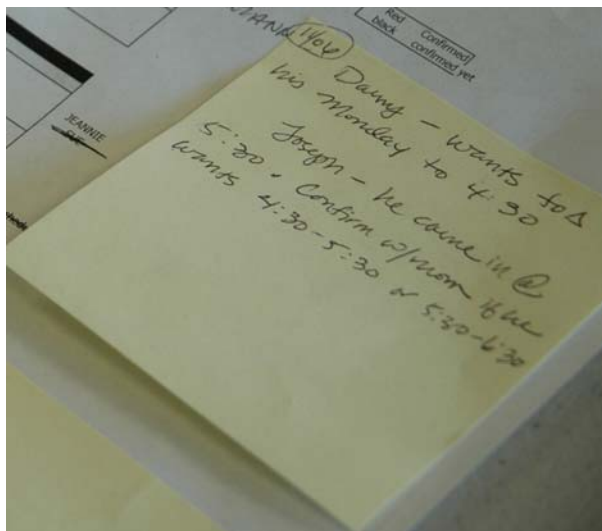 Red Confirmed
black confirmed yet
1404
Danny - wants to Δ
his Monday to 4:30
Joseph - he came in @
5:30. Confirm w/mom if he
wants 4:30-5:30 or 5:30-6:30
JEANNIE